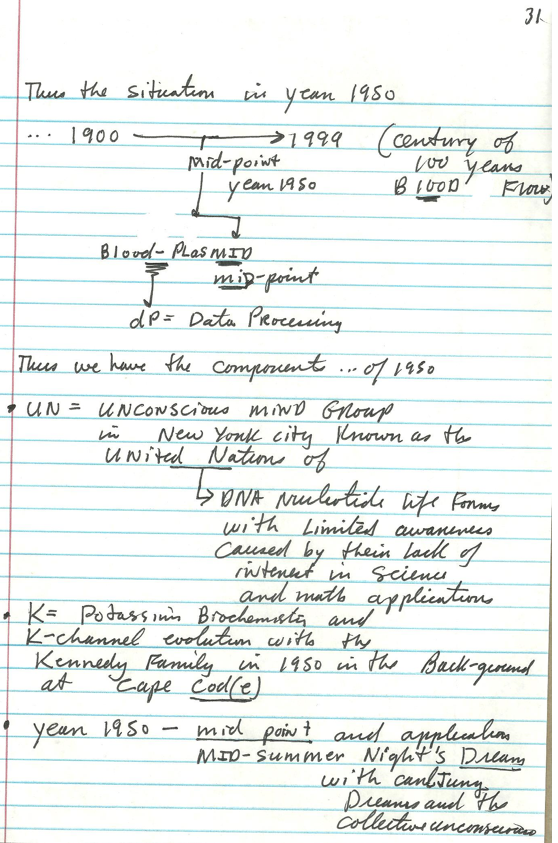 31
Thus the situation in year 1950
... 1900 → 1999 (century of
100 years
Mid-point
year 1950
B100D Flow)
Blood-PLasMID
MID-point
dP = Data Processing
Thus we have the components ... of 1950
• UN = UNCONSCIOUS MIND Group
in New York city Known as the
United Nations of
DNA Nucleotide Life Forms
with Limited awareness
Caused by their lack of
interest in Science
and math applications
• K = Potassium Biochemistry and
K-channel evolution with the
Kennedy Family in 1950 in the Back-ground
at Cape Cod(e)
• year 1950 - mid point and application
MID-summer Night's Dream
with Carl Jung
Dreams and the
collective unconscious